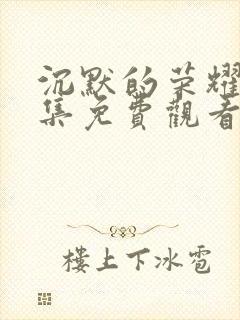 沉默的荣耀
集免費觀看
樓上下冰雹